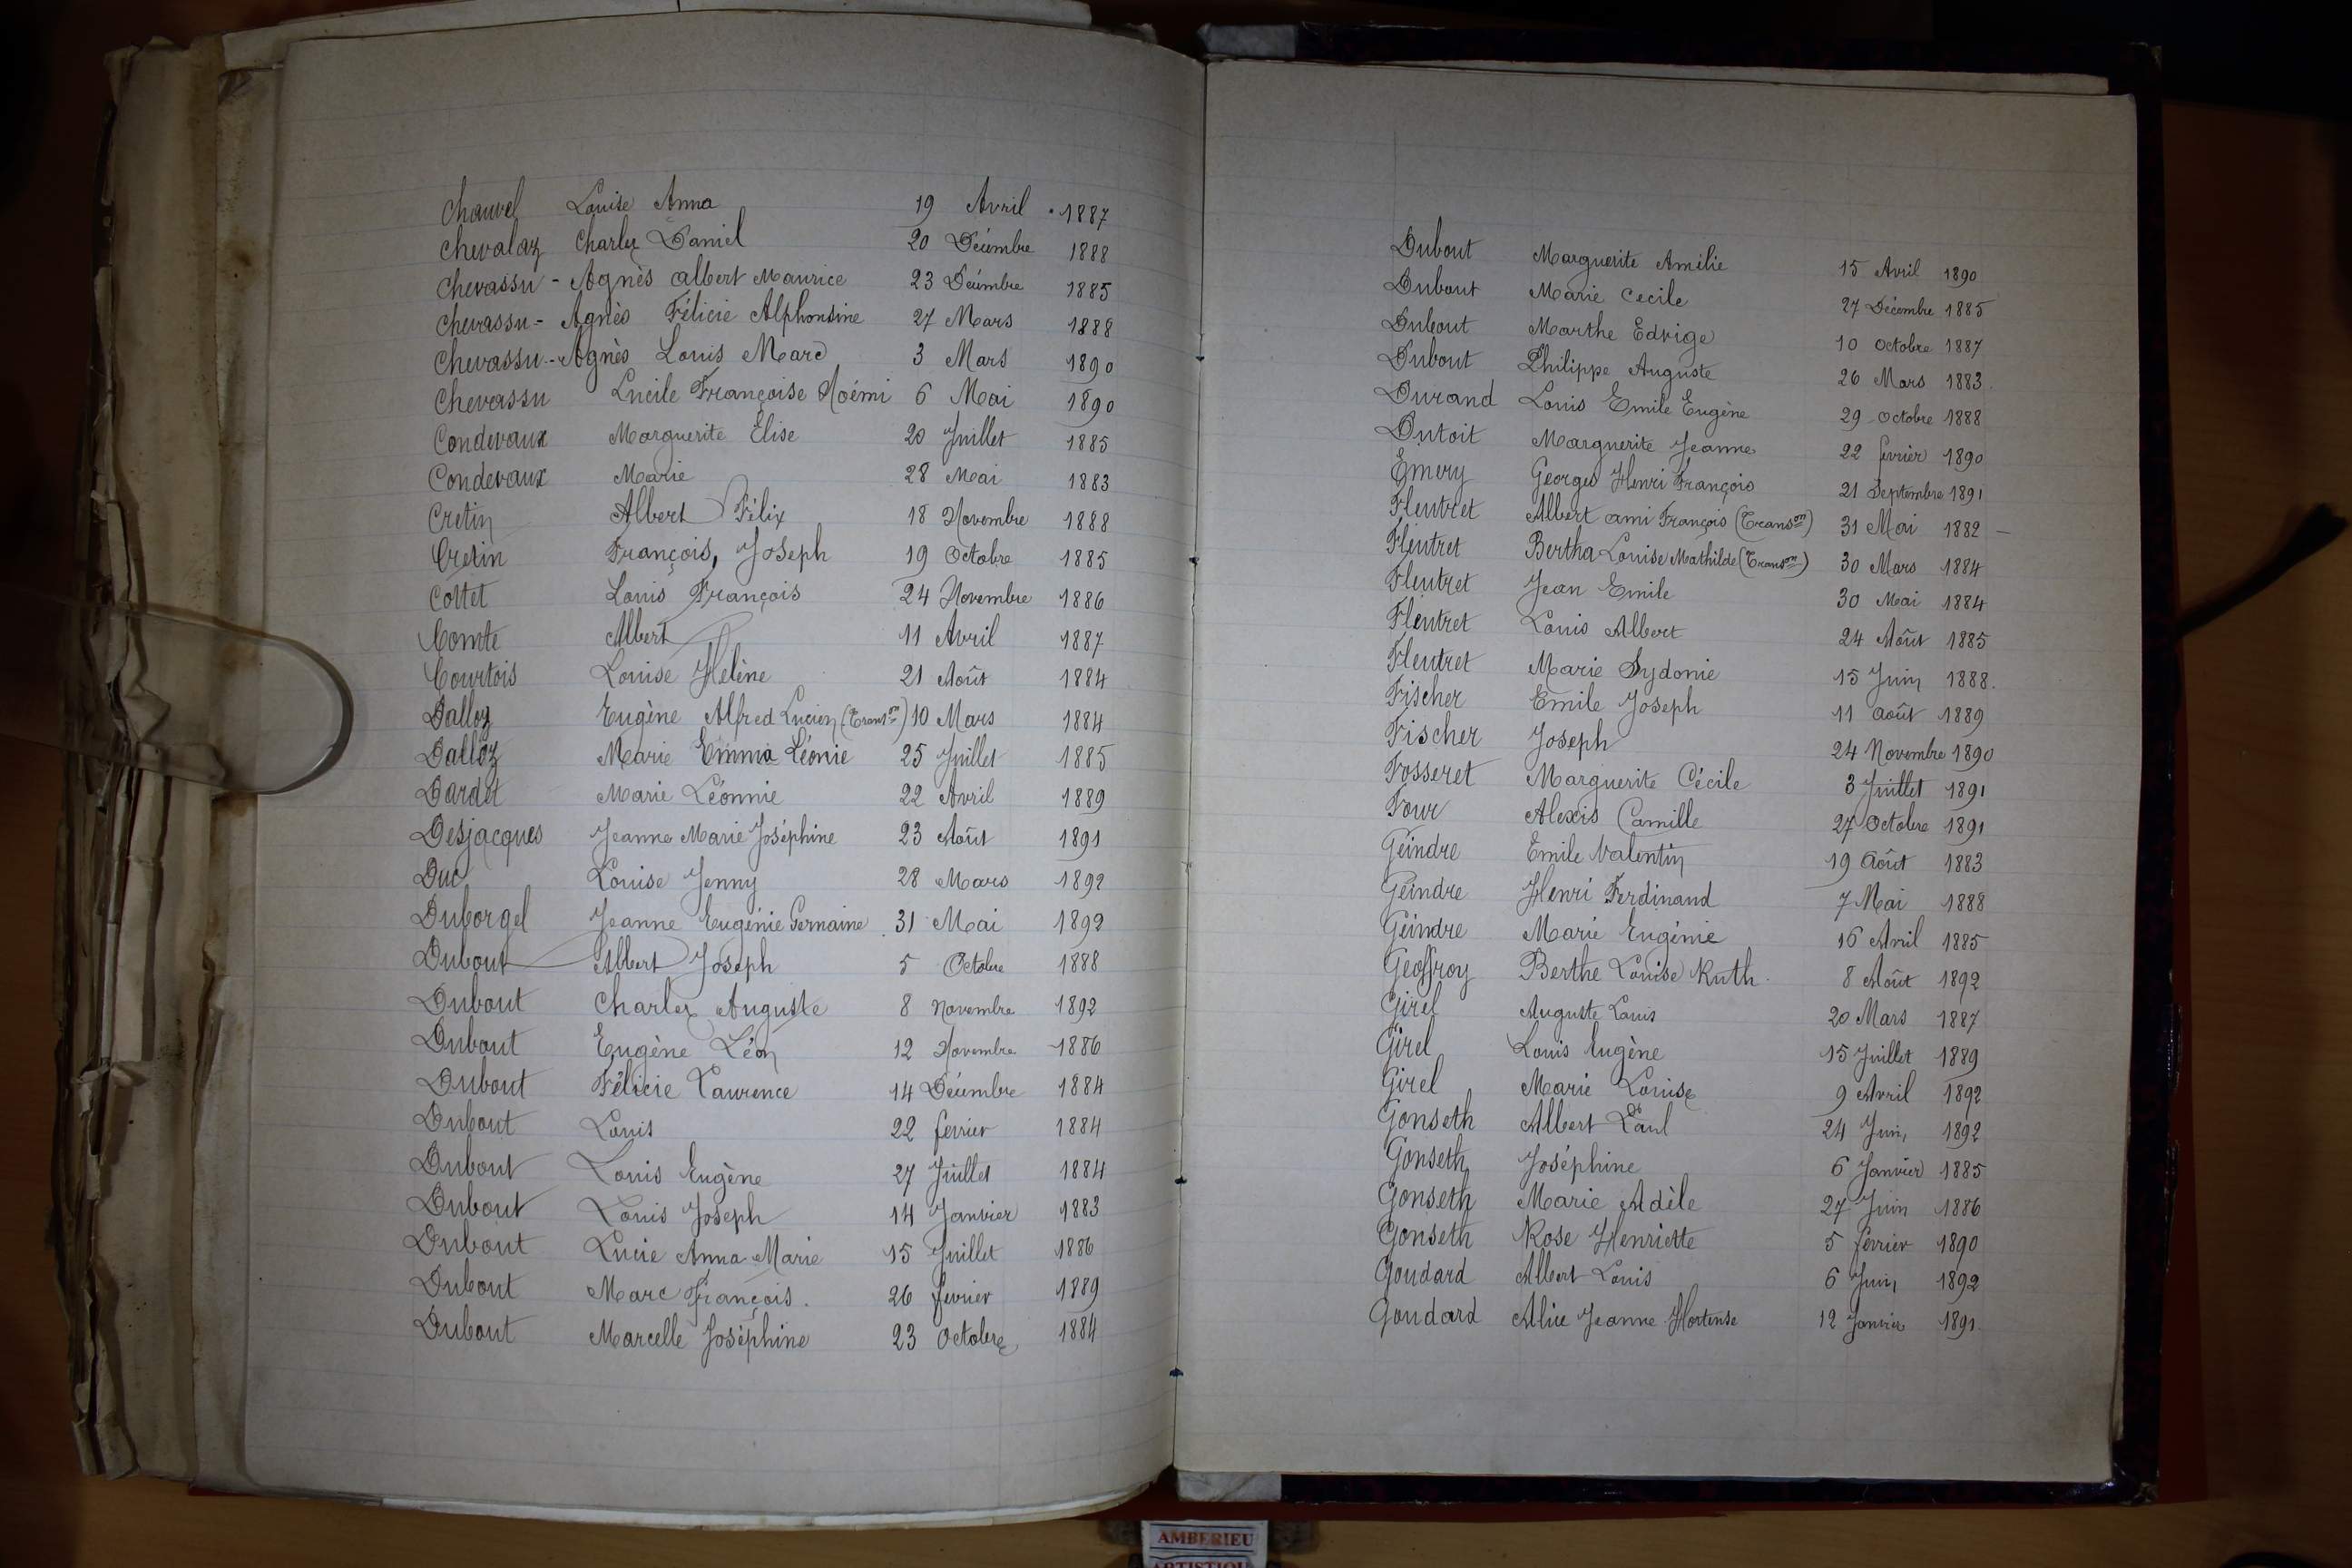 Chauvel Louise Anna 19 Avril 1887
Chevalaz Charles Daniel 20 Décembre 1888
Chevassu - Agnès Albert Maurice 23 Décembre 1885
Chevassu - Agnès Félicie Alphonsine 27 Mars 1888
Chevassu - Agnès Louis Marc 3 Mars 1890
Chevassu Lucile Françoise Noémi 6 Mai 1890
Condevaux Marguerite Élise 20 Juillet 1885
Condevaux Marie 28 Mai 1883
Cretin Albert Félix 18 Novembre 1888
Cretin François, Joseph 19 Octobre 1885
Cottet Louis François 24 Novembre 1886
Comte Albert 11 Avril 1887
Courtois Louise Hélène 21 Août 1884
Dalloz Eugène Alfred Lucien (Transon) 10 Mars 1884
Dalloz Marie Emma Léonie 25 Juillet 1885
Dardet Marie Léonnie 22 Avril 1889
Desjacques Jeanne Marie Joséphine 23 Août 1891
Duc Louise Jenny 28 Mars 1892
Duborgel Jeanne Eugénie Germaine 31 Mai 1892
Dubout Albert Joseph 5 Octobre 1888
Dubout Charles Auguste 8 Novembre 1892
Dubout Eugène Léon 12 Novembre 1886
Dubout Félicie Laurence 14 Décembre 1884
Dubout Louis 22 février 1884
Dubout Louis Eugène 27 Juillet 1884
Dubout Louis Joseph 14 Janvier 1883
Dubout Lucie Anna Marie 15 Juillet 1886
Dubout Marc François. 26 février 1889
Dubout Marcelle Joséphine 23 Octobre 1884
Dubout Marguerite Amélie 15 Avril 1890
Dubout Marie Cecile 27 Décembre 1885
Dubout Marthe Edvige 10 Octobre 1887
Dubout Philippe Auguste 26 Mars 1883
Durand Louis Emile Eugène 29 Octobre 1888
Dutoit Marguerite Jeanne 22 février 1890
Emery Georges Henri François 21 Septembre 1891
Fleutret Albert ami François (Transon) 31 Mai 1882 -
Fleutret Bertha Louise Mathilde (Transon) 30 Mars 1884
Fleutret Jean Emile 30 Mai 1884
Fleutret Louis Albert 24 Août 1885
Fleutret Marie Sydonie 15 Juin 1888
Fischer Emile Joseph 11 août 1889
Fischer Joseph 24 Novembre 1890
Fosseret Marguerite Cécile 3 Juillet 1891
Four Alexis Camille 27 Octobre 1891
Geindre Emile Valentin 19 août 1883
Geindre Henri Ferdinand 7 Mai 1888
Geindre Marie Eugénie 16 Avril 1885
Geoffroy Berthe Louise Ruth. 8 Août 1892
Girel Auguste Louis 20 Mars 1887
Girel Louis Eugène 15 Juillet 1889
Girel Marie Louise 9 Avril 1892
Gonseth Albert Paul 24 Juin 1892
Gonseth Joséphine 6 Janvier 1885
Gonseth Marie Adèle 27 Juin 1886
Gonseth Rose Henriette 5 février 1890
Goudard Albert Louis 6 Juin 1892
Goudard Alice Jeanne Hortense 12 Janvier 1891
AMBERIEU